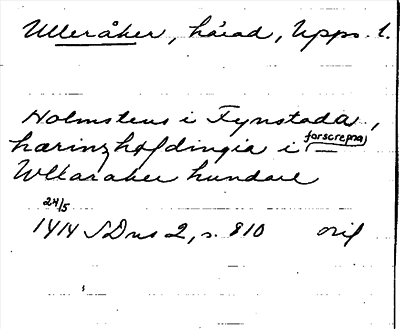 Ulleråker, härad, Upps. l.
Holmstens i Fynstada,
hærinzhofdingia i (forscrepna) —
Wllaraker hundare
24/5
1414 SDns 2, s. 810 orig